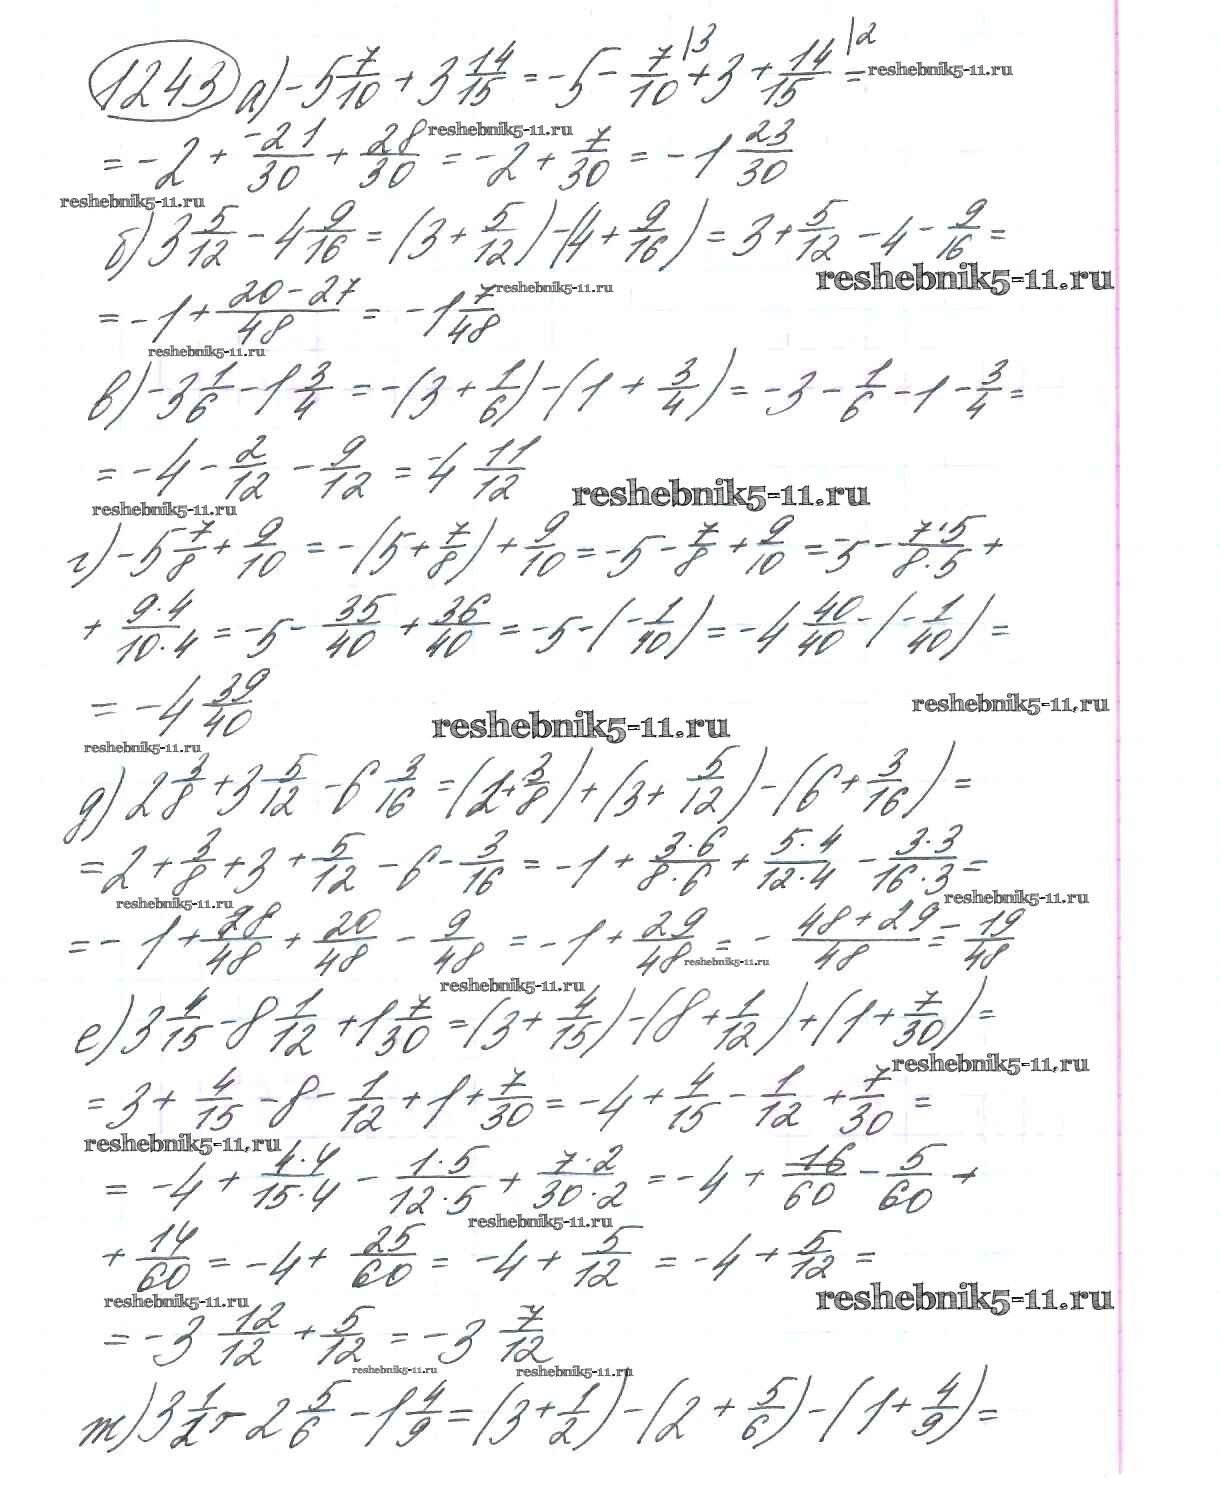 1243 а) -5 7/10 + 3 14/15 = -5 - 7/10 |3 + 3 + 14/15 |2 = reshebnik5-11.ru
= -2 + -21/30 + 28/30 = -2 + 7/30 = -1 23/30
reshebnik5-11.ru
reshebnik5-11.ru
б) 3 5/12 - 4 9/16 = (3 + 5/12) - (4 + 9/16) = 3 + 5/12 - 4 - 9/16 =
reshebnik5-11.ru
= -1 + 20-27/48 = -1 7/48
reshebnik5-11.ru
reshebnik5-11.ru
в) -3 1/6 - 1 3/4 = -(3 + 1/6) - (1 + 3/4) = -3 - 1/6 - 1 - 3/4 =
= -4 - 2/12 - 9/12 = -4 11/12
reshebnik5-11.ru
reshebnik5-11.ru
г) -5 7/8 + 9/10 = -(5 + 7/8) + 9/10 = -5 - 7/8 + 9/10 = -5 - 7·5/8·5 +
+ 9·4/10·4 = -5 - 35/40 + 36/40 = -5 - (-1/40) = -4 40/40 - (-1/40) =
= -4 39/40
reshebnik5-11.ru
reshebnik5-11.ru
reshebnik5-11.ru
д) 2 3/8 + 3 5/12 - 6 3/16 = (2 + 3/8) + (3 + 5/12) - (6 + 3/16) =
= 2 + 3/8 + 3 + 5/12 - 6 - 3/16 = -1 + 3·6/8·6 + 5·4/12·4 - 3·3/16·3 =
reshebnik5-11.ru
reshebnik5-11.ru
= -1 + 18/48 + 20/48 - 9/48 = -1 + 29/48 = - 48+29/48 = - 19/48
reshebnik5-11.ru
reshebnik5-11.ru
е) 3 4/15 - 8 1/12 + 1 7/30 = (3 + 4/15) - (8 + 1/12) + (1 + 7/30) =
reshebnik5-11.ru
= 3 + 4/15 - 8 - 1/12 + 1 + 7/30 = -4 + 4/15 - 1/12 + 7/30 =
reshebnik5-11.ru
= -4 + 4·4/15·4 - 1·5/12·5 + 7·2/30·2 = -4 + 16/60 - 5/60 +
reshebnik5-11.ru
+ 14/60 = -4 + 25/60 = -4 + 5/12 = -4 + 5/12 =
reshebnik5-11.ru
reshebnik5-11.ru
= -3 12/12 + 5/12 = -3 7/12
reshebnik5-11.ru
reshebnik5-11.ru
ж) 3 1/2 - 2 5/6 - 1 4/9 = (3 + 1/2) - (2 + 5/6) - (1 + 4/9) =